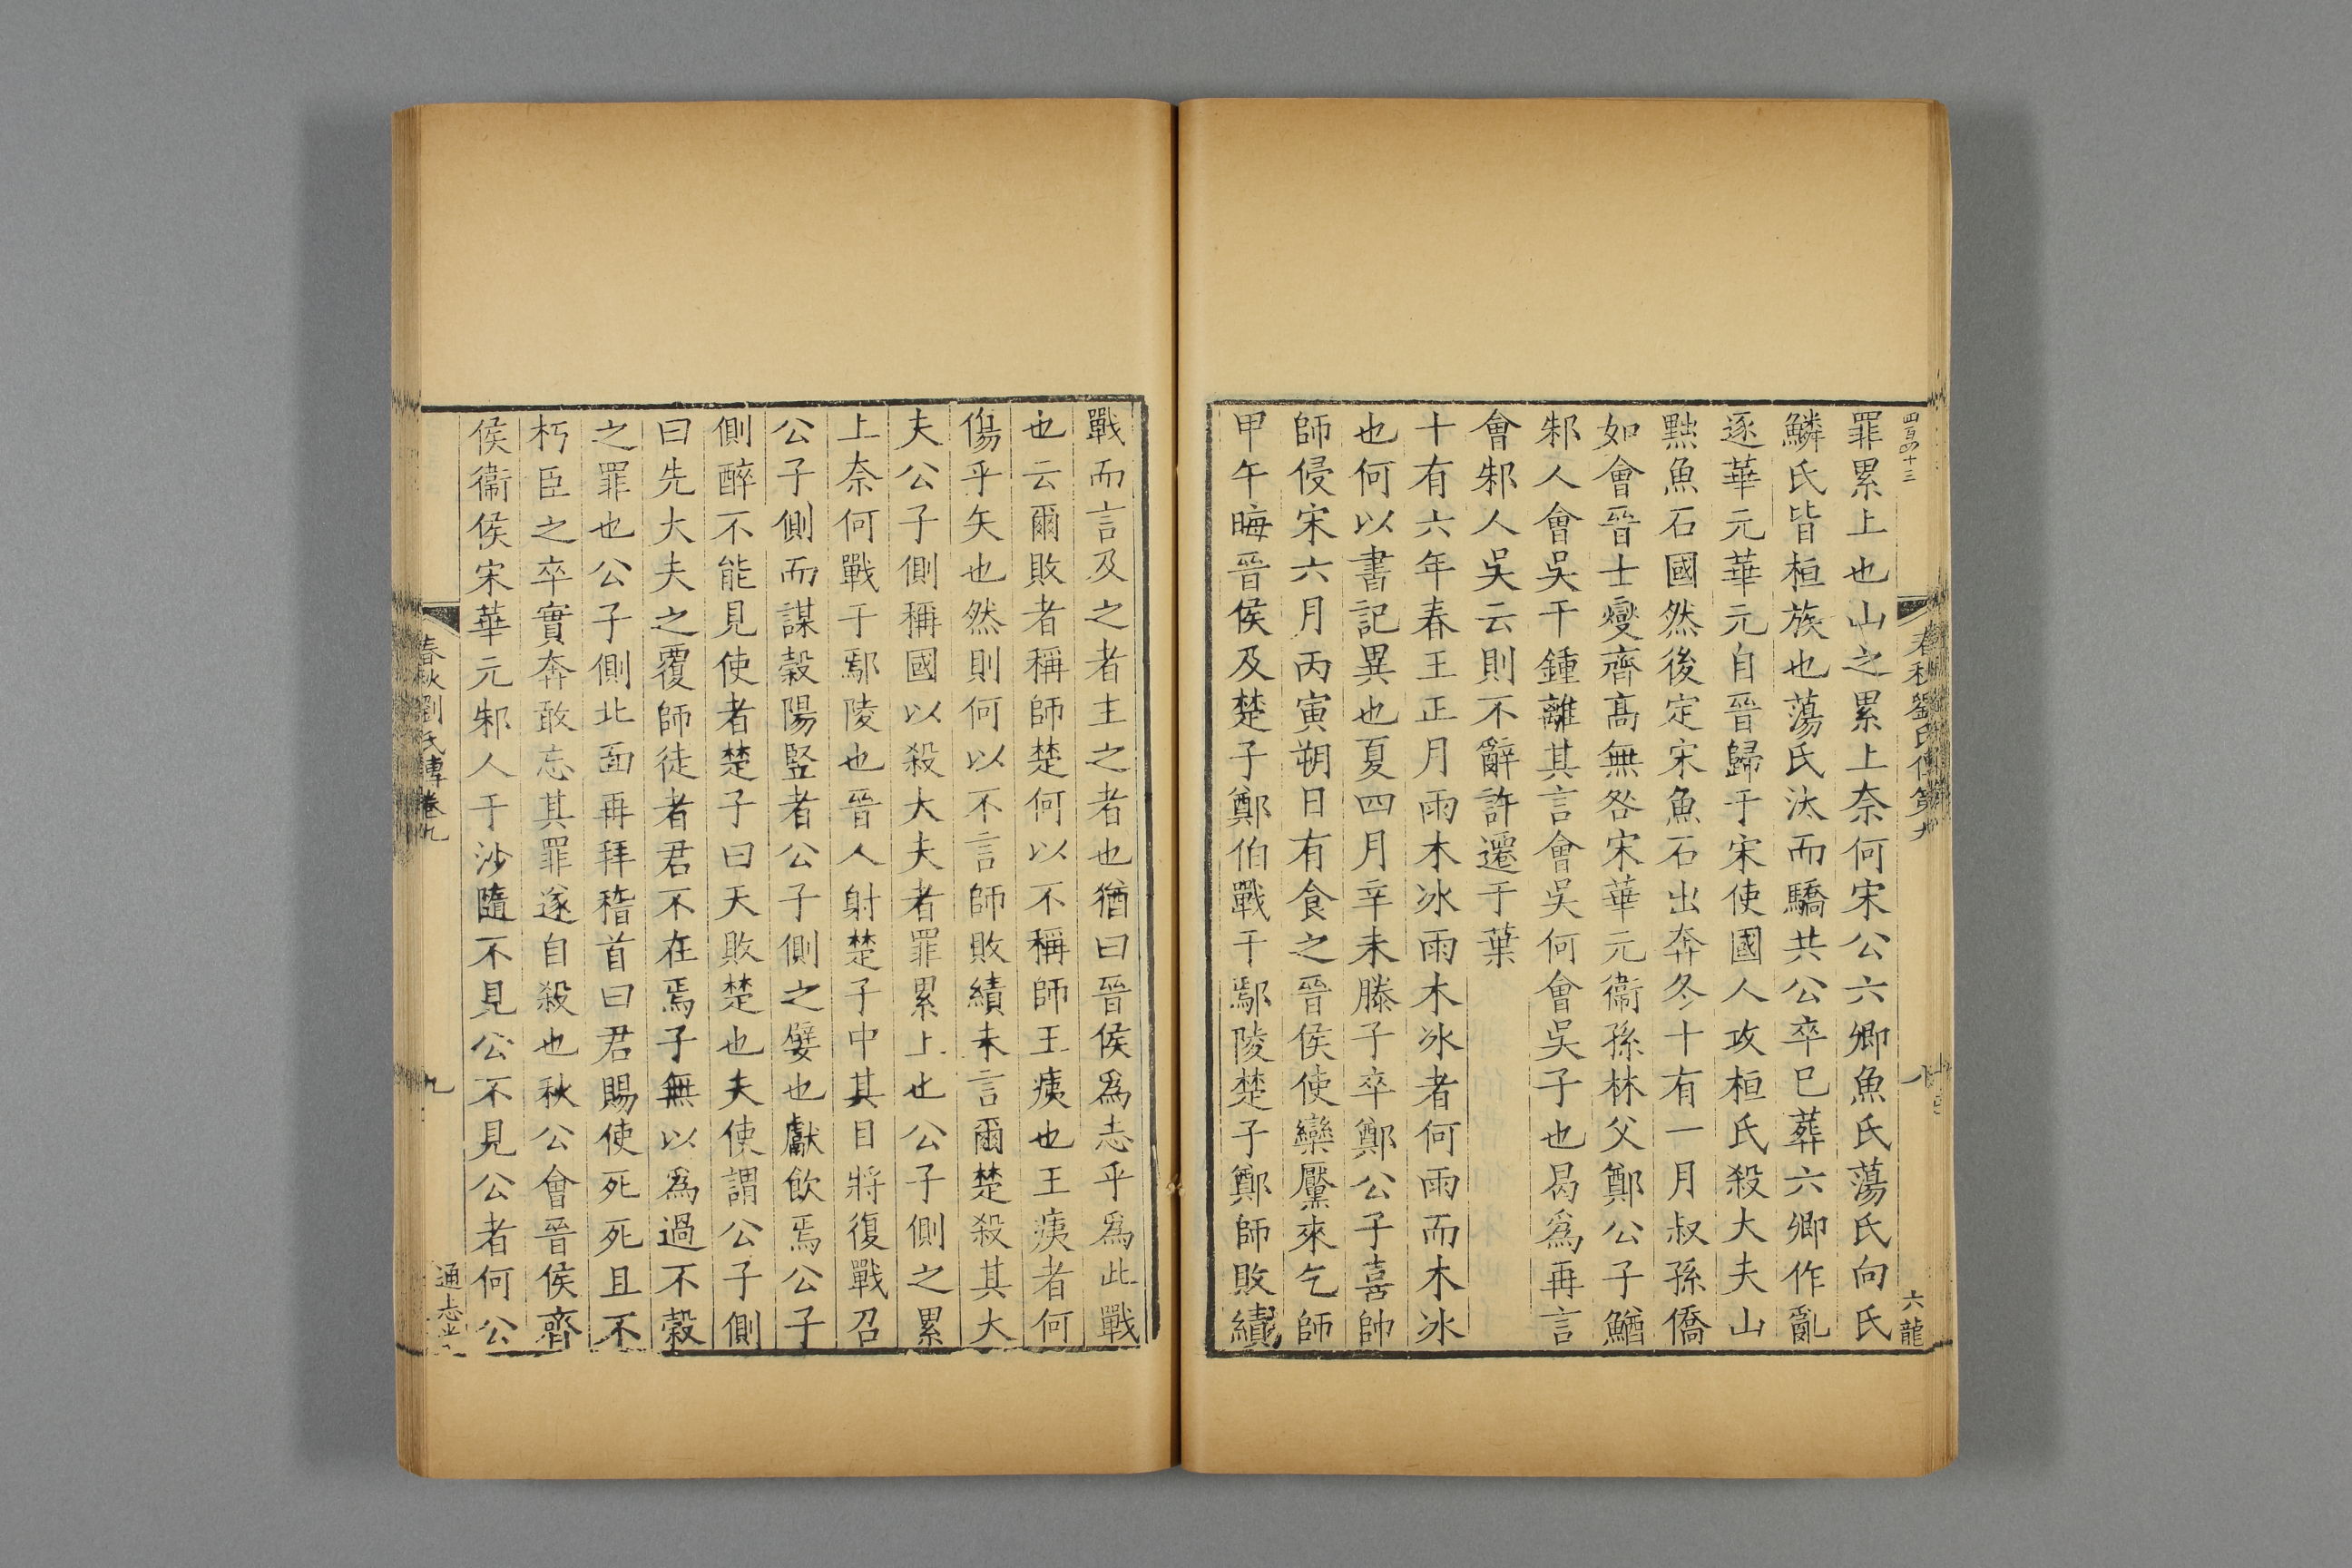 四百四十三
六龍
罪累上也山之累上奈何宋公六卿魚氏蕩氏向氏
鱗氏皆桓族也蕩氏汰而驕共公卒巳葬六卿作亂
逐華元華元自晉歸于宋使國人攻桓氏殺大夫山
㸃魚石國然後定宋魚石出奔冬十有一月叔孫僑
如會晉士燮齊髙無咎宋華元衞孫林父鄭公子鰌
邾人會吳于鍾離其言會吳何會吳子也曷爲再言
會邾人吳云則不辭許遷于葉
十有六年春王正月雨木冰雨木冰者何雨而木冰
也何以書記異也夏四月辛未滕子卒鄭公子喜帥
師侵宋六月丙寅朔日有食之晉侯使欒黶來乞師
甲午晦晉侯及楚子鄭伯戰于鄢陵楚子鄭師敗績
戰而言及之者主之者也猶曰晉侯爲志乎爲此戰
也云爾敗者稱師楚何以不稱師王痍也王痍者何
傷乎矢也然則何以不言師敗績未言爾楚殺其大
夫公子側稱國以殺大夫者罪累上也公子側之累
上奈何戰于鄢陵也晉人射楚子中其目將復戰召
公子側而謀榖陽竪者公子側之嬖也獻飲焉公子
側醉不能見使者楚子曰天敗楚也夫使謂公子側
曰先大夫之覆師徒者君不在焉子無以爲過不榖
之罪也公子側北面再拜稽首曰君賜使死死且不
朽臣之卒實奔敢忘其罪遂自殺也秋公會晉侯齊
侯衞侯宋華元邾人于沙隨不見公不見公者何公
春秋劉氏傳卷九
九
通志堂